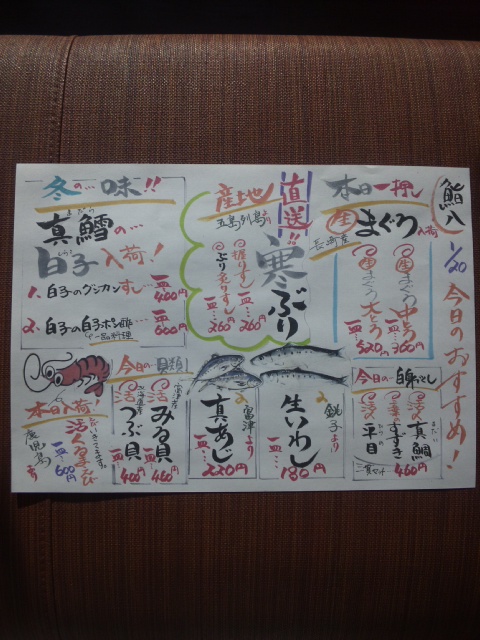 鮨八
1/20 今日のおすすめ!
本日一押し
生まぐろ入荷
長崎産
生まぐろ中とろ
一皿…360円
生まぐろ大とろ
一皿…520円
産地直送!!
五島列島より
寒ぶり
握りずし
一皿…260円
ぶり炙りずし
一皿…260円
冬の…味!!
真鱈の…
まだら
白子入荷!
しらこ
1. 白子のグンカンずし… 一皿400円
2. 白子の白子ポン酢… 一皿600円
一品料理
今日の…白身づくし
活〆真鯛
まだい
すずき
平目
一貫セット 460円
銚子より
生いわし
一皿…180円
富津より
真あじ
一皿…220円
今日の…貝類
富津産
活みる貝
一皿…460円
北海道産
活つぶ貝
一皿…400円
本日入荷!
活くるまえび
一皿…600円
鹿児島より